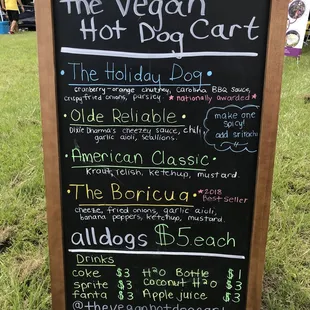 the Vegan
Hot Dog Cart
The Holiday Dog
cranberry-orange chutney, Carolina BBQ sauce,
crispy fried onions, parsley *nationally awarded*
Olde Reliable
Dixie Dharma's cheezey sauce, chili,
garlic aioli, scallions.
make one
spicy!
add sriracha
American Classic
kraut, relish, ketchup, mustard.
The Boricua
*2018
Best Seller
cheeze, fried onions, garlic aioli,
banana peppers, ketchup, mustard.
alldogs $5 each
Drinks
coke $3 H2O Bottle $1
sprite $3 coconut H2O $3
fanta $3 Apple juice $3
@theveganhotdogcart